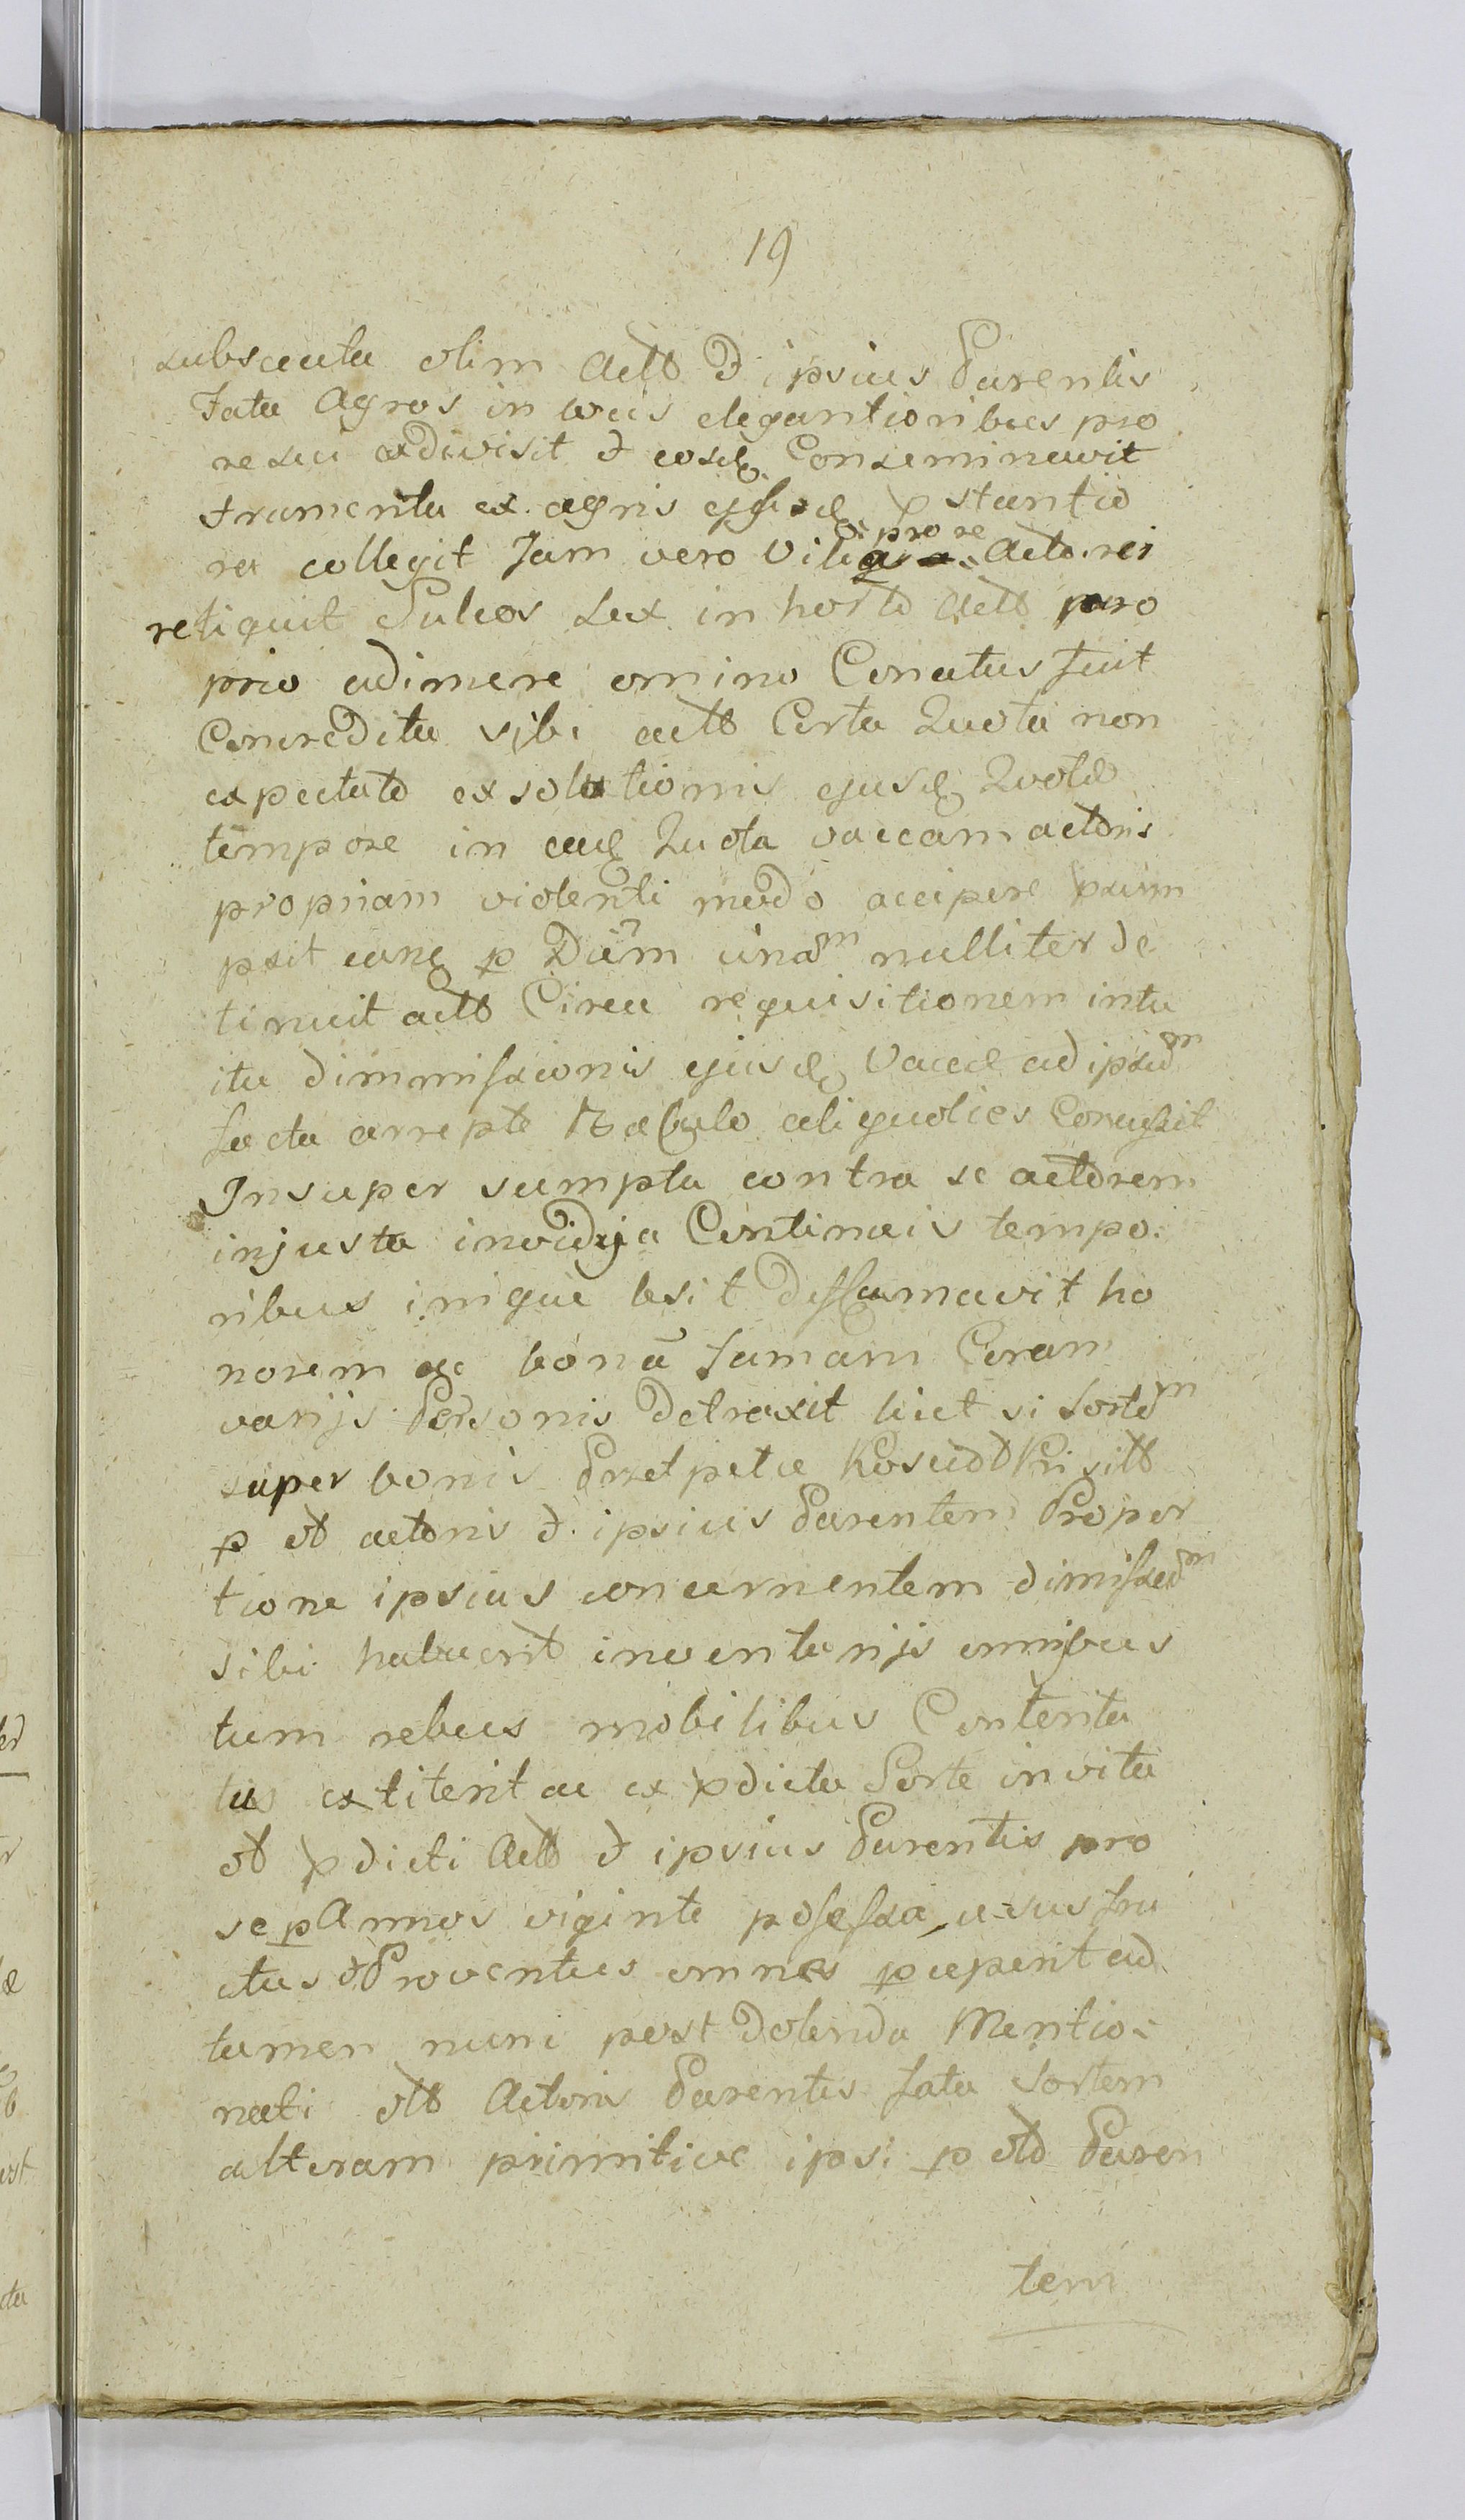 19
subsecuta olim Actō & ipsius Parentis
Fata Agros in locis elegantioribus pro
re sui exdivisit & eosdē Conseminavit
Frumenta ex agris ejusdē pstantio
ra collegit Jam vero Viliora pro re Acto rei
reliquit Sulcos sex in horto Actō pro
prio adimere omino Conatus fuit
Concredita sibi actō Certa Quota non
expectato exsolutionis ejusdē Quotæ
tempore in eadē Quota vaccam actoris
propriam violenti modo accipere prium
psit eanq p Diem unam nulliter de
tinuit actō Circa requisitionem intu
itu dimmissionis ejusdē Vaccæ ad ipsum
facta arrepto Baculo aliquoties Concussit
Insuper sumpta contra se actorem
injusta invidija Continuis tempo:
ribus inique lesit Diffamavit ho
norem ac bonā famam Coram
varijs Personis Detraxit licet si sortem
super bonis Kosudki sitō
p oð actoris & ipsius Parentem Propor
tione ipsius concernentem dimissam
sibi habuerit inventarijs omnibus
tum rebus mobilibus Contenta
tus extiterit ac ex pdicta Sorte invita
oð pdicti Actō & ipsius Parentis pro
se p Annos viginte posessa usus fru
ctus & Proventus omnes pceperit ad
tamen nunc post Dolenda Mentio:
nati olō Actoris Parentis fata Sortem
alteram primitive ipsi p olō Paren
tem